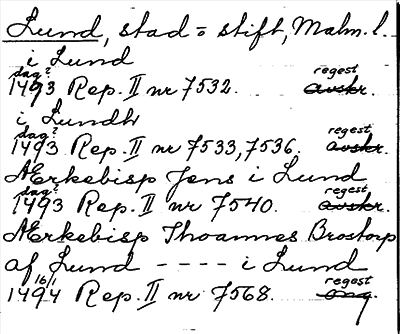 Lund, stad = stift, Malm. l.
i Lund
dag? regest
1493 Rep. II nr 7532. avskr.
i Lundh
dag? regest
1493 Rep. II nr 7533, 7536. avskr.
Ærkebisp Jens i Lund
dag? regest
1493 Rep. II nr 7540. avskr.
Ærkebisp Thoannes Brostorp
af Lund - - - - i Lund
16/1 regest
1494 Rep. II nr 7568. orig.